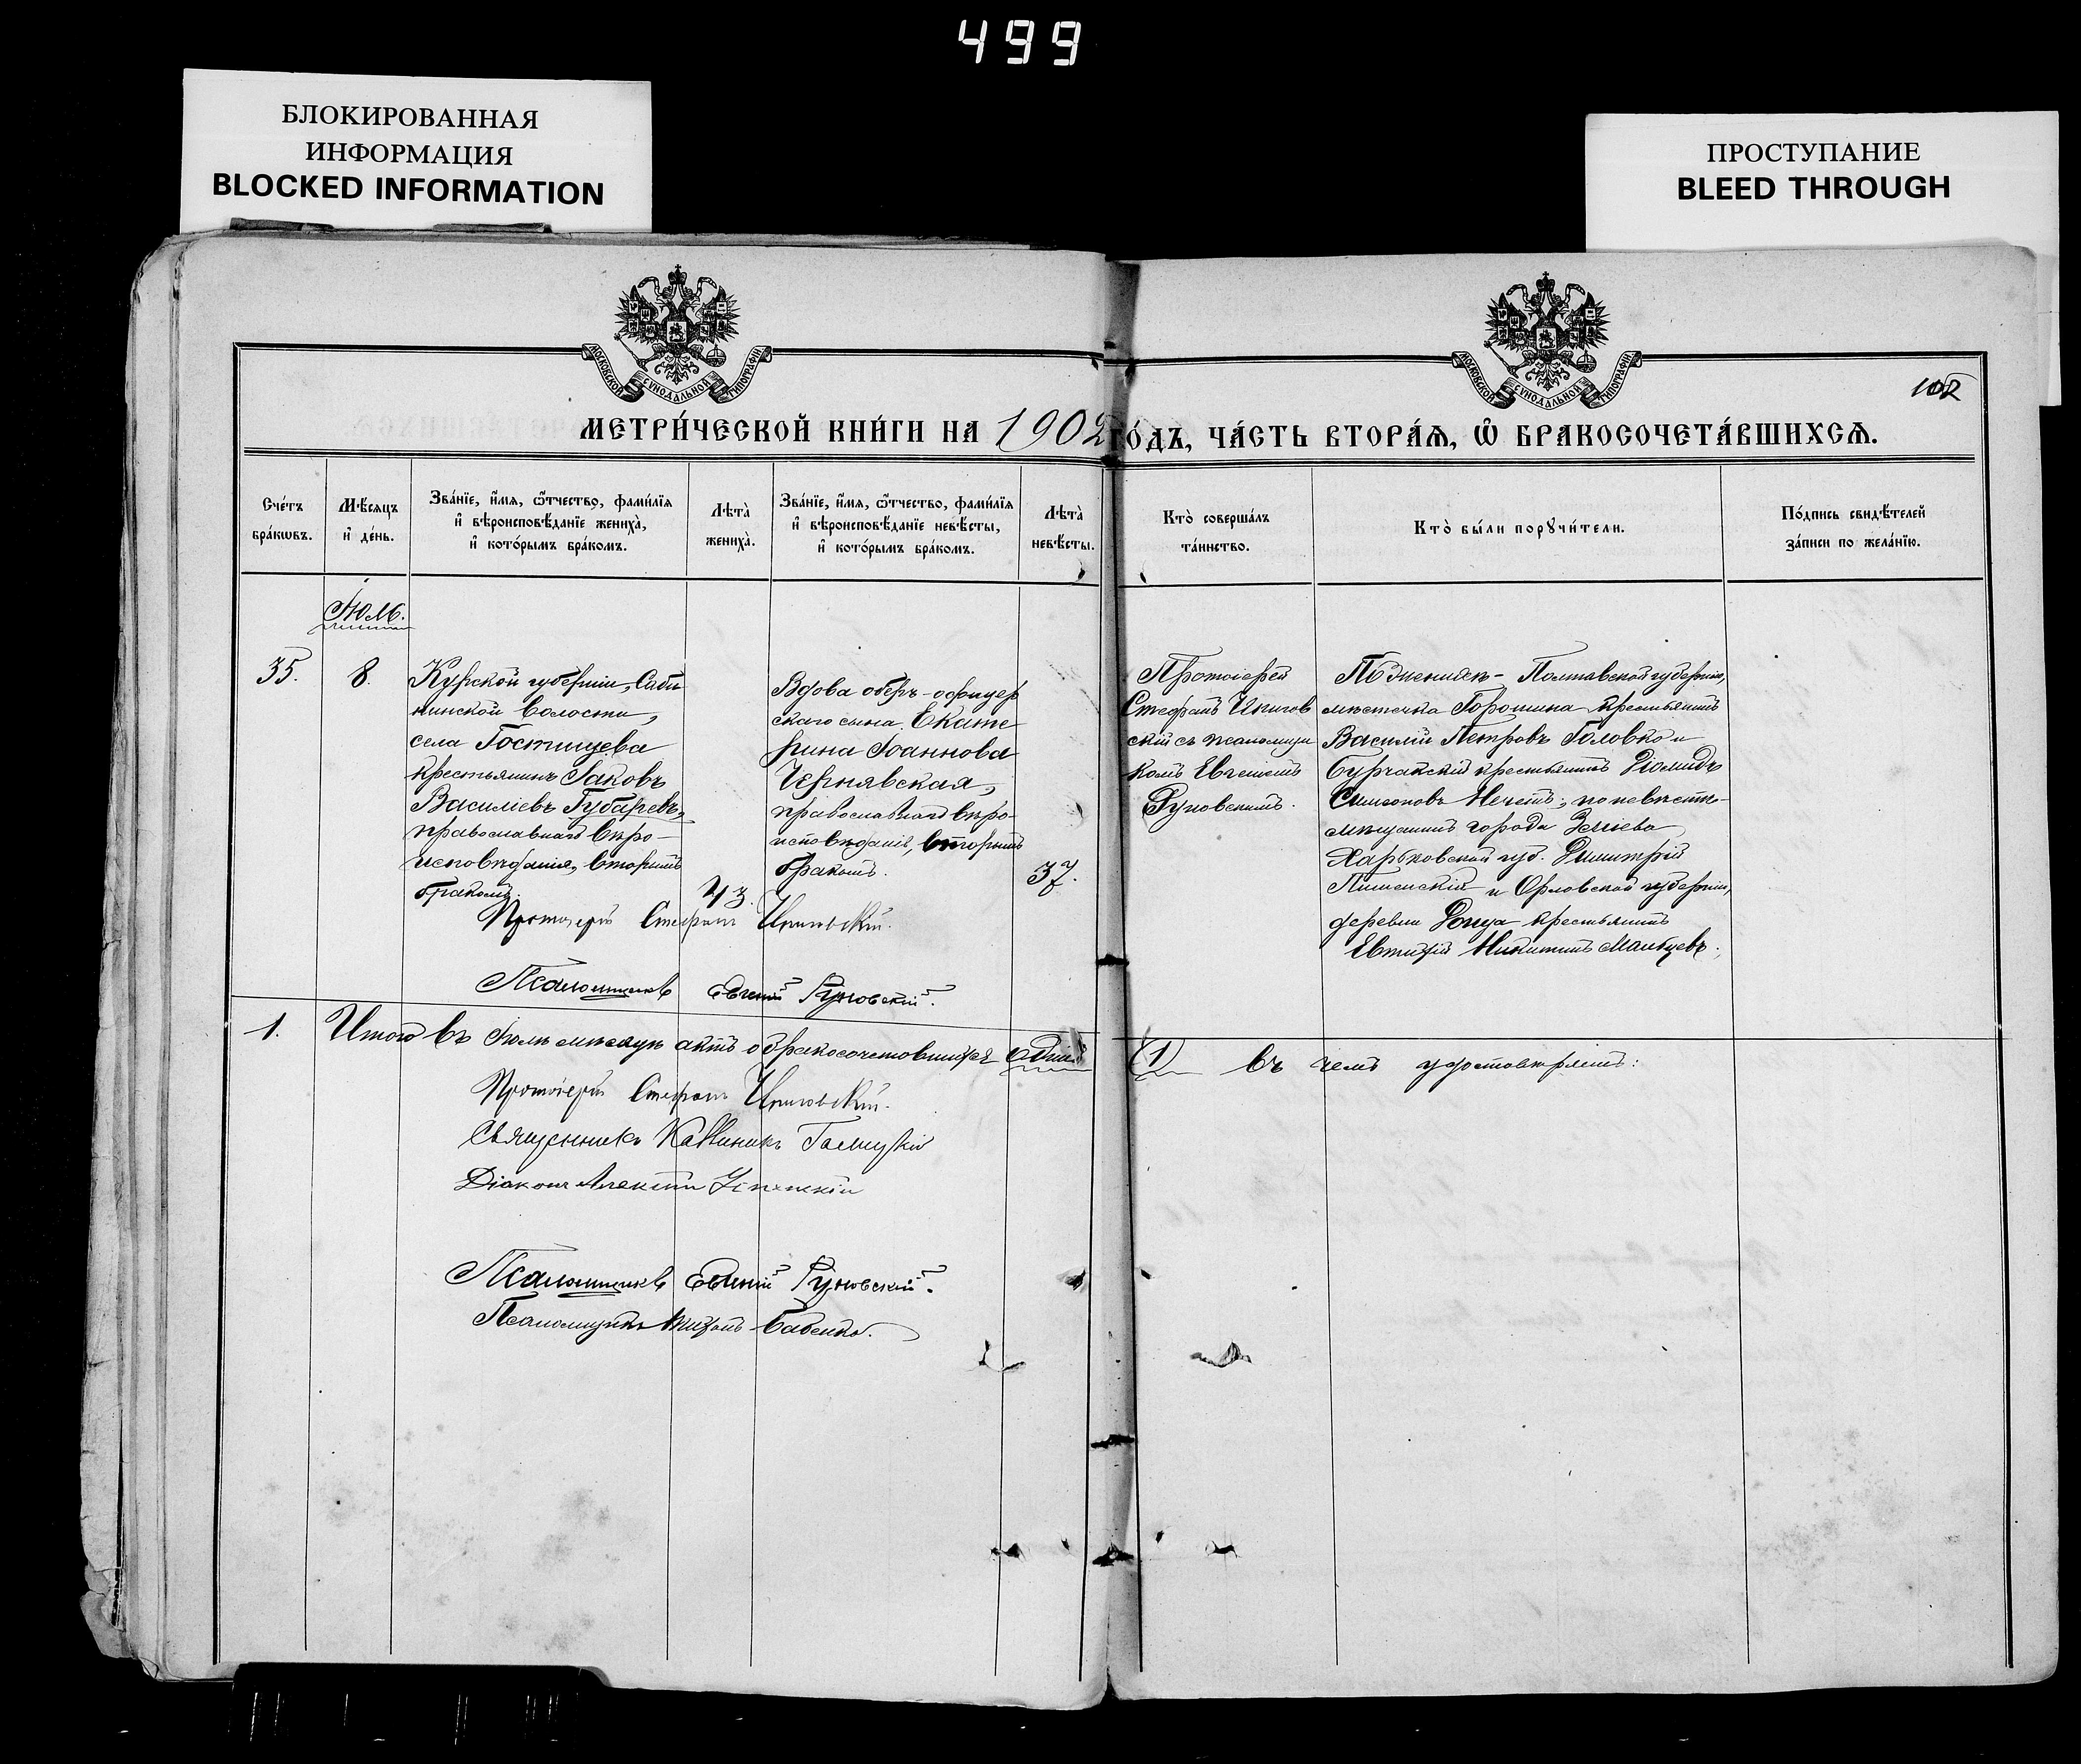 499
БЛОКИРОВАННАЯ
ИНФОРМАЦИЯ
BLOCKED INFORMATION
ПРОСТУПАНИЕ
BLEED THROUGH
МОСКОВСКОЙ СУНОДАЛЬНОЙ ТИПОГРАФІИ
МОСКОВСКОЙ СУНОДАЛЬНОЙ ТИПОГРАФІИ
102
МЕТРИ́ЧЕСКОЙ КНИ́ГИ НА 1902 ГО́ДЪ, ЧА́СТЬ ВТОРА́Ѧ, Ѡ҆ БРАКОСОЧЕТА́ВШИХСѦ.
Сче́тъ
бра́кѡвъ.
Мѣ́сѧцъ
и҆ де́нь.
Зва́нїе, и҆́мѧ, ѻ҆́тчество, фами́лїѧ
и҆ вѣроисповѣ́данїе жениха̀,
и҆ кото́рымъ бра́комъ.
Лѣта̀
жениха̀.
Зва́нїе, и҆́мѧ, ѻ҆́тчество, фами́лїѧ
и҆ вѣроисповѣ́данїе невѣ́сты,
и҆ кото́рымъ бра́комъ.
Лѣта̀
невѣ́сты.
Кто̀ соверша́лъ
та́инство.
Кто̀ бы́ли порꙋчи́тели.
По́дпись свидѣ́телей
за́писи по жела́нїю.
Іюль.
35.
8.
Курской губерніи, Саби
нинской волости,
села Гостищева
крестьянинъ Іаковъ
Василіевъ Губаревъ,
православнаго веро-
исповѣданія, вторымъ
бракомъ.
43.
Вдова оберъ-офицер
скаго сына Екате
рина Іоаннова
Чернявская,
православнаго веро-
исповѣданія, вторымъ
бракомъ.
37.
Протоіерей
Стефанъ
скій съ псаломщи
комъ Евгеніемъ
Руновскимъ.
По женихѣ - Полтавской губерніи,
мѣстечка Горошина крестьянинъ
Василій Петровъ Головко и
крестьянинъ Діомидъ
Симеоновъ по невѣстѣ-
мѣщанинъ города Зміева
Харьковской губ. Димитрій
и Орловской губерніи,
деревни крестьянинъ
Евтихій Никитинъ
Протоіерей Стефанъ
Псаломщикъ Евгеній Руновскій.
1.
Итого въ Іюлѣ мѣсяцѣ актъ о бракосочетавшихся одинъ
(1) въ чемъ удостовѣряемъ:
Протоіерей Стефанъ
Священникъ Каллиникъ
Діаконъ Алексій
Псаломщикъ Евгеній Руновскій.
Псаломщикъ Тихонъ Бабенко.